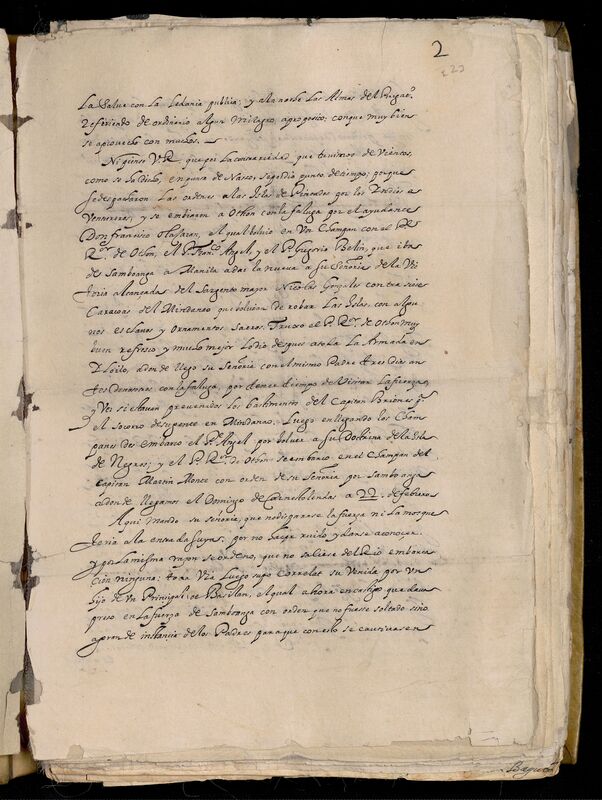 2
La Salue con la Ledania publica; y ala noche las Almas del Purgato.
Refiriendo de ordinario algun Milagro aproposito; conque muy bien
se aprouecho con muchos.
No piense V.R. que por la contrariedad que tuvimos de Vientos,
como se ha dicho, en punta de Naso, se perdio punto de tiempo; porque
se despacharon las ordenes alas Islas de Pintados por los Indios a
Ventureros; y se embiaron a Othon con la faluga por el ayudante
Don francisco Olasaran, el qual boluio en Vn Champan con el P.
R.or de Othon, el P. Franco. Angel, y el P. Gregorio Belin, que iba
de Samboanga a Manila adar la nueva a su Señoria dela Vi
ctoria alcanzada del Sargento mayor Nicolas Gonzales contra siete
Caracoas del Mindanao que boluian de robar las Islas, con algu
nos esclauos y Ornamentos sacros. Truxo el P. R.or de Othon muy
buen refresco y mucho mejor lo dio despues a toda la Armada en
Yloilo, adonde llego su Señoria con el mismo Padre tres dias an
tes que nosotros con la faluga, por tener tiempo de Visitar la fuerza,
y Ver si estauan preuenidos los bastimentos del Capitan Briones pa.
el socorro de su gente en Mindanao. Luego en llegando los Cham
panes des embarco el P. Angel por boluer a su Doctrina dela Isla
de Negros; y el P. R.or de Othon se embarco en el Champan del
Capitan Martin Monte con orden de su Señoria por Samboanga
adonde llegamos el Domingo de Carnestolendas a 22. de febrero
Aqui mando su señoria, que no disparase la fuerza ni la mosque
teria ala entrada suya, por no hazer ruido y darse a conocer.
y por la misma razon se ordeno, que no saliese del Rio embarca
cion ninguna; toda Via luego supo Corralat su Venida por Vn
hijo de Vn Principal de Basilan, el qual ahora en castigo quedaua
preso en la fuerza de Samboanga con orden que no fuese soltado sino
apeon de instancia delos Padres para que con esto se cautiuasen